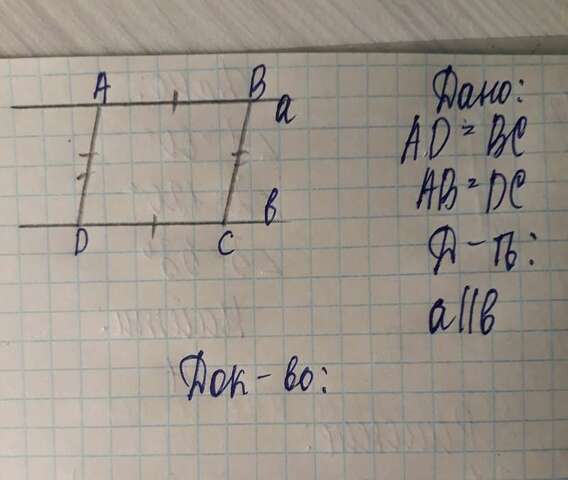 A B a
D C в
Дано:
AD = BC
AB = DC
Д-ть:
a||в
Док-во: